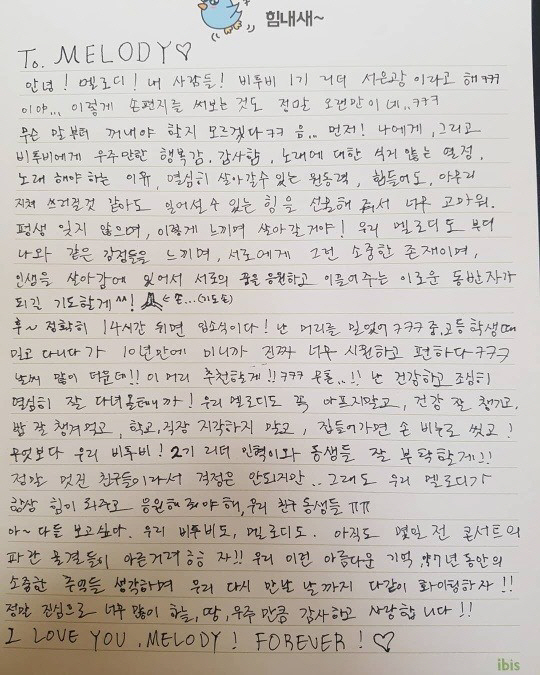 힘내새~
To. MELODY♡
안녕! 멜로디! 내 사람들! 비투비 1기 리더 서은광이라고 해ㅋㅋㅋ
이야... 이렇게 손편지를 써보는 것도 정말 오랜만이네..ㅋㅋㅋ
무슨 말부터 꺼내야 할지 모르겠다ㅋㅋ 음.. 먼저! 나에게, 그리고
비투비에게 우주만한 행복감, 감사함, 노래에 대한 식지 않는 열정,
노래 해야하는 이유, 열심히 살아갈수 있는 원동력, 힘들어도, 아무리
지쳐 쓰러질것 같아도 일어설수 있는 힘을 선물해 줘서 너무 고마워.
평생 잊지 않으며, 이렇게 느끼며 살아갈거야! 우리 멜로디도 부디
나와 같은 감정들을 느끼며, 서로에게 그런 소중한 존재이며,
인생을 살아감에 있어서 서로의 꿈을 응원하고 이끌어주는 이로운 동반자가
되길 기도할게^^! ← 손...(기도손)
후~ 정확히 14시간 뒤면 입소식이다! 난 머리를 밀었어ㅋㅋㅋ 중,고등학생때
밀고 다니다가 10년만에 미니까 진짜 너무 시원하고 편하다ㅋㅋㅋ
날씨 많이 더운데!! 이 머리 추천할게!!ㅋㅋㅋ 무튼..!! 난 건강하고 조심히
열심히 잘 다녀올테니까! 우리 멜로디도 꼭 아프지말고, 건강 잘 챙기고,
밥 잘 챙겨먹고, 학교,직장 지각하지 말고, 집들어가면 손 비누로 씻고!
무엇보다 우리 비투비! 2기 리더 민혁이와 동생들 잘 부탁할게!!
정말 멋진 친구들이라서 걱정은 안되지만.. 그래도 우리 멜로디가
항상 힘이 되주고 응원해줘야 해, 우리 친구 동생들 ㅠㅠ
아~ 다들 보고싶다. 우리 비투비도, 멜로디도. 아직도 몇일 전 콘서트의
파란 물결들이 아른거려 흠흠 자!! 우리 이런 아름다운 기억, 약 7년 동안의
소중한 추억들 생각하며 우리 다시 만날 날까지 다같이 화이팅하자!!
정말 진심으로 너무 많이 하늘, 땅, 우주 만큼 감사하고 사랑합니다!!
I LOVE YOU, MELODY! FOREVER! ♡
ibis